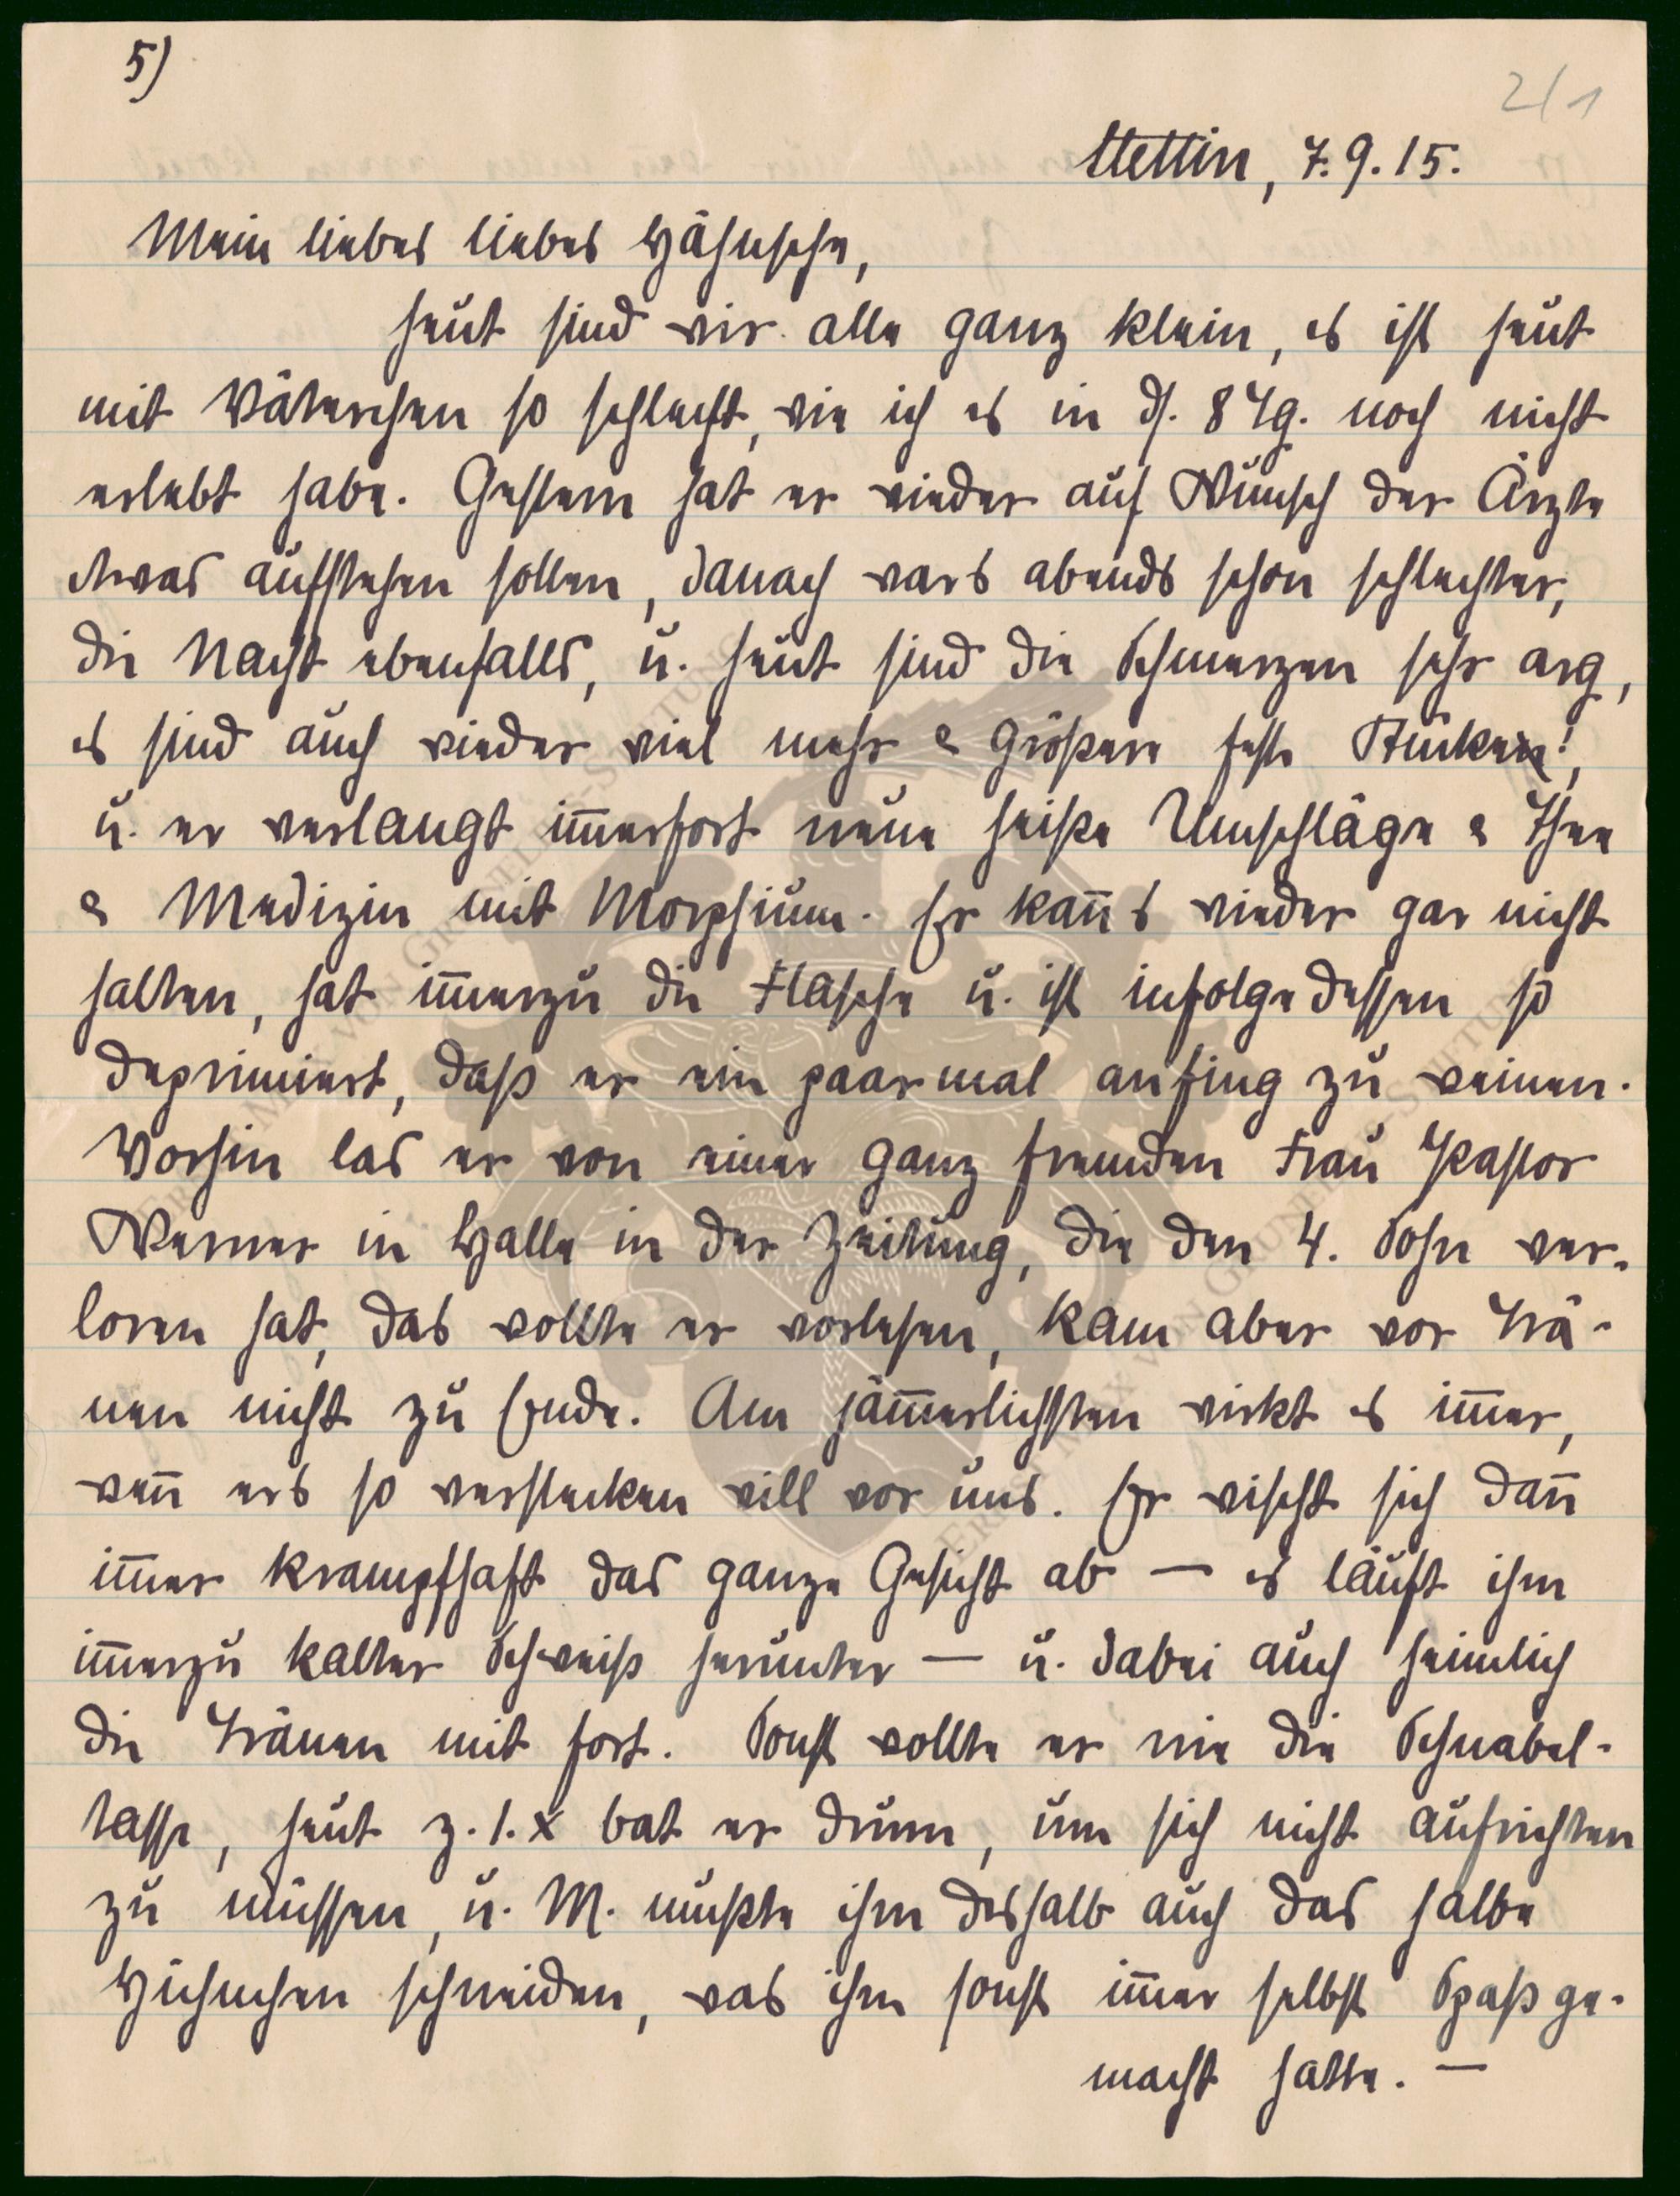 5)
2/1
Stettin, 7.9.15.
Mein liebes liebes Hähnsche,
heut sind wir alle ganz klein, es ist heut
mit Väterchen so schlecht, wie ich es in ds. 8 Tg. noch nicht
erlebt habe. Gestern hat er wieder auf Wunsch der Ärzte
etwas aufstehen sollen, danach wars abends schon schlechter,
die Nacht ebenfalls, u. heut sind die Schmerzen sehr arg,
es sind auch wieder viel mehr & größere feste Stücken!,
u. er verlangt im̅erfort neue heiße Umschläge & Thee
& Medizin mit Morphium. Er kan̅s wieder gar nicht
halten, hat im̅erzu die Flasche u. ist infolgedessen so
deprimiert, daß er ein paarmal anfing zu weinen.
Vorhin las er von einer ganz fremden Frau Pastor
Werner in Halle in der Zeitung, die den 4. Sohn ver-
loren hat, das wollte er vorlesen, kam aber vor Trä-
nen nicht zu Ende. Am jäm̅erlichsten wirkt es im̅er,
wen̅ ers so verstecken will vor uns. Er wischt sich dan̅
im̅er krampfhaft das ganze Gesicht ab — es läuft ihm
im̅erzu kalter Schweiß herunter — u. dabei auch heimlich
die Tränen mit fort. Sonst wollte er nie die Schnabel-
tasse, heut z. 1. x bat er drum, um sich nicht aufrichten
zu müssen, u. M. mußte ihm deshalb auch das halbe
Hühnchen schneiden, was ihm sonst im̅er selbst Spaß ge-
macht hatte. —
ERNST MAX VON GRUNELIUS-STIFTUNG
ERNST MAX VON GRUNELIUS-STIFTUNG